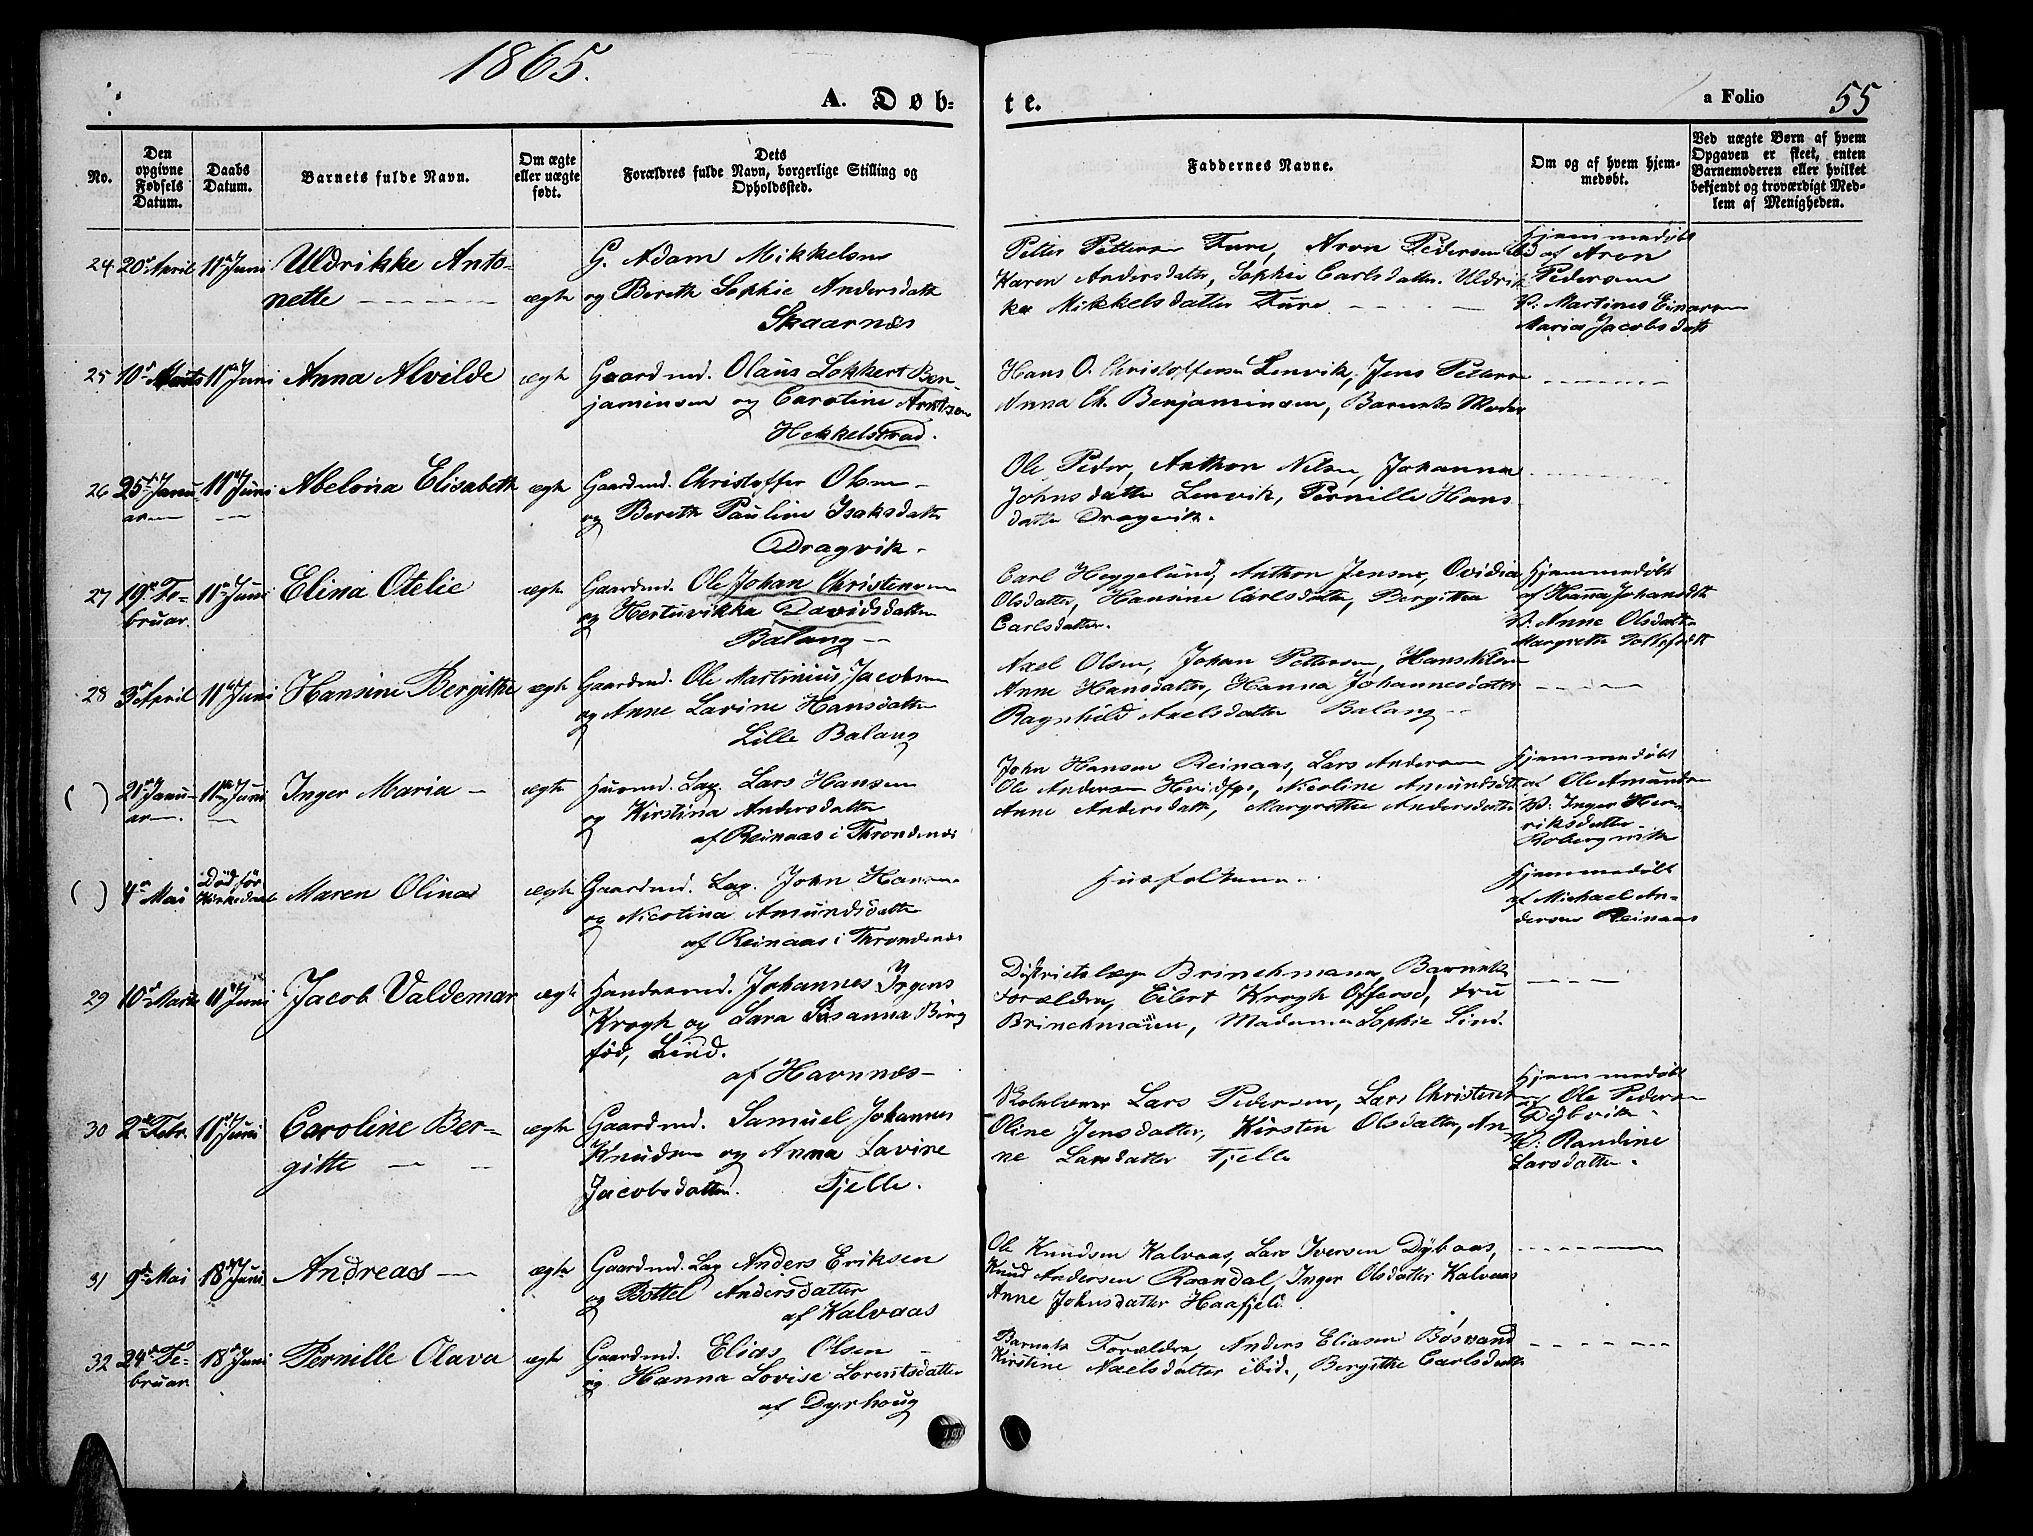 1865.
A. Døb-
te.
a Folio 55
No.
Den opgivne Fødsels Datum.
Daabs Datum.
Barnets fulde Navn.
Om ægte eller uægte født.
Dets Forældres fulde Navn, borgerlige Stilling og Opholdssted.
Faddernes Navne.
Om og af hvem hjemmedøbt.
Ved uægte Børn af hvem Opgaven er skeet, enten Barnemoderen eller hvilket bekjendt og troværdigt Medlem af Menigheden.
24 20de April 11te Juni Uldrikke Anto-
nette ægte
G. Adam Mikkelsen
og Bereth Sophie Andersdatter
Skaarnæs
Petter Pettersen Fure, Aron Pedersen ibid
Karen Andersdatter, Sophie Carlsdatter. Uldrik
ke Mikkelsdatter Fure
Hjemmedøbt
af Aron
Pedersen
V: Martines Einarsen
Maria Jacobsdatt
25 10de Marts 11te Juni Anna Alvilde ægte
Gaardmd. Olaus Lokkert Ben-
jaminsen og Caroline Arntsen
Hekkelstrad.
Hans O. Christoffersen Lenvik, Jens Petersen
Anna Ch. Benjaminsen, Barnets Moder
26 25de Janu-
ar 11te Juni Abelona Elisabeth ægte
Gaardmd. Christoffer Olsen
og Bereth Pauline Isaksdatter
Dragvik.
Ole Peder, Anthon Nilsen, Johanna
Johnsdatter Lenvik, Pernille Hans
datter Dragvik.
27 19de Fe-
bruar. 11te Juni Elina Otelie ægte
Gaardmd. Ole Johan Christensen
og Hertuvikka Davidsdatter
Balang
Carl Heggelund, Anthon Jensen, Ovidia
Olsdatter, Hansine Carlsdatter, Bergitha
Carlsdatter.
Hjemmedøbt
af Hanna Johansdtr
V. Anne Olsdatter
Margrethe
28 3de April 11te Juni Hansine Bergithe ægte
Gaardmd. Ole Martinius Jacobsen
og Anne Lavine Hansdatter
Lille Balang
Axel Olsen, Johan Pettersen, Hans Olsen
Anne Hansdatter, Hanna Johannesdatter
Ragnhild Axelsdatter Balang
( ) 21de Janu-
ar. 11te Juni Inger Maria ægte
Huusmd. Lap. Lars Hansen
og Kirstina Andersdatter
af Reinaas i Throndenæs
John Hansen Reinaas, Lars Andersen
Ole Andersen, Nicoline Amundsdtr
Anne Andersdatt, Margrethe Andersdatter
Hjemmedøbt
af Ole Amundsen
V: Inger Hen-
riksdatter
Robergvik
( ) 4de Mai Død før
Kirkedaab Maren Olina ægte
Gaardmd. Lap. John Hansen
og Nicolina Amundsdatter
af Reinaas i Throndenæs
Husfolkene
Hjemmedøbt
af Michael An-
dersen Reinaas
29 10de Marts 11te Juni Jacob Valdemar ægte
Handelsmd. Johannes Irgens
Krogh og Sara Susanna Bing
fød, Lind.
af Havnnæs
Distriktslæge Brinchmann, Barnets
Forældre, Eilert Krogh Offersø, Fru
Brinchmann, Madame Sophie Lind.
30 2den Febr. 11te Juni Caroline Ber-
gitte ægte
Gaardmd. Samuel Johannes
Knudsen og Anna Lavine
Jacobsdatter. Fjelle.
Skolelærer Lars Pedersen, Lars Christensen
Oline Jensdatter, Kirsten Olsdatter, An
ne Larsdatter Fjelle
Hjemmedøbt
af Ole Pedersen
Dybvik
V: Randine
Larsdatter.
31 9de Mai 18de Juni Andreas ægte
Gaardmd. Lap Anders Eriksen
og Bottel Andersdatter
af Kalvaas
Ole Knudsen Kalvaas, Lars Iversen Dybaas,
Knud Andersen Raandal, Inger Olsdatter Kalvaas
Anne Johnsdatter Haafjeld.
32 24de Fe-
bruar 18de Juni Pernille Olava ægte
Gaardmd. Elias Olsen
og Hanna Lovise Lorentsdatter
af Dyrhoug
Barnets Forældre, Anders Eliasen Bøsvand
Kirstine Axelsdatter ibid., Bergithe Carlsdatter